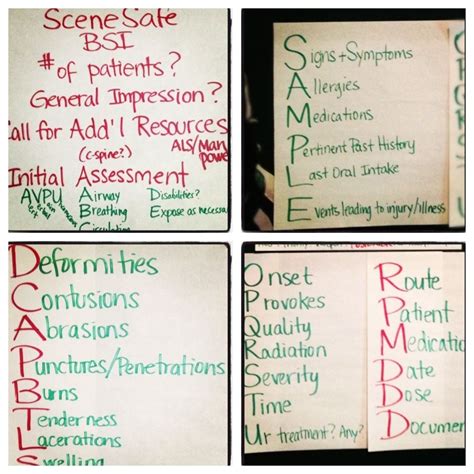 Scene Safe
BSI
# of patients?
General Impression?
Call for Add'l Resources
(c-spine?) ALS/Man power
Initial Assessment
AVPU Airway Disabilities?
Breathing Expose as necessa
Circulation
Signs+Symptoms
Allergies
Medications
Pertinent Past History
Last Oral Intake
Events leading to injury/illness
Deformities
Contusions
Abrasions
Punctures/Penetrations
Burns
Tenderness
Lacerations
Swelling
Onset
Provokes
Quality
Radiation
Severity
Time
Ur treatment? Any?
Route
Patient
Medicatio
Date
Dose
Documen